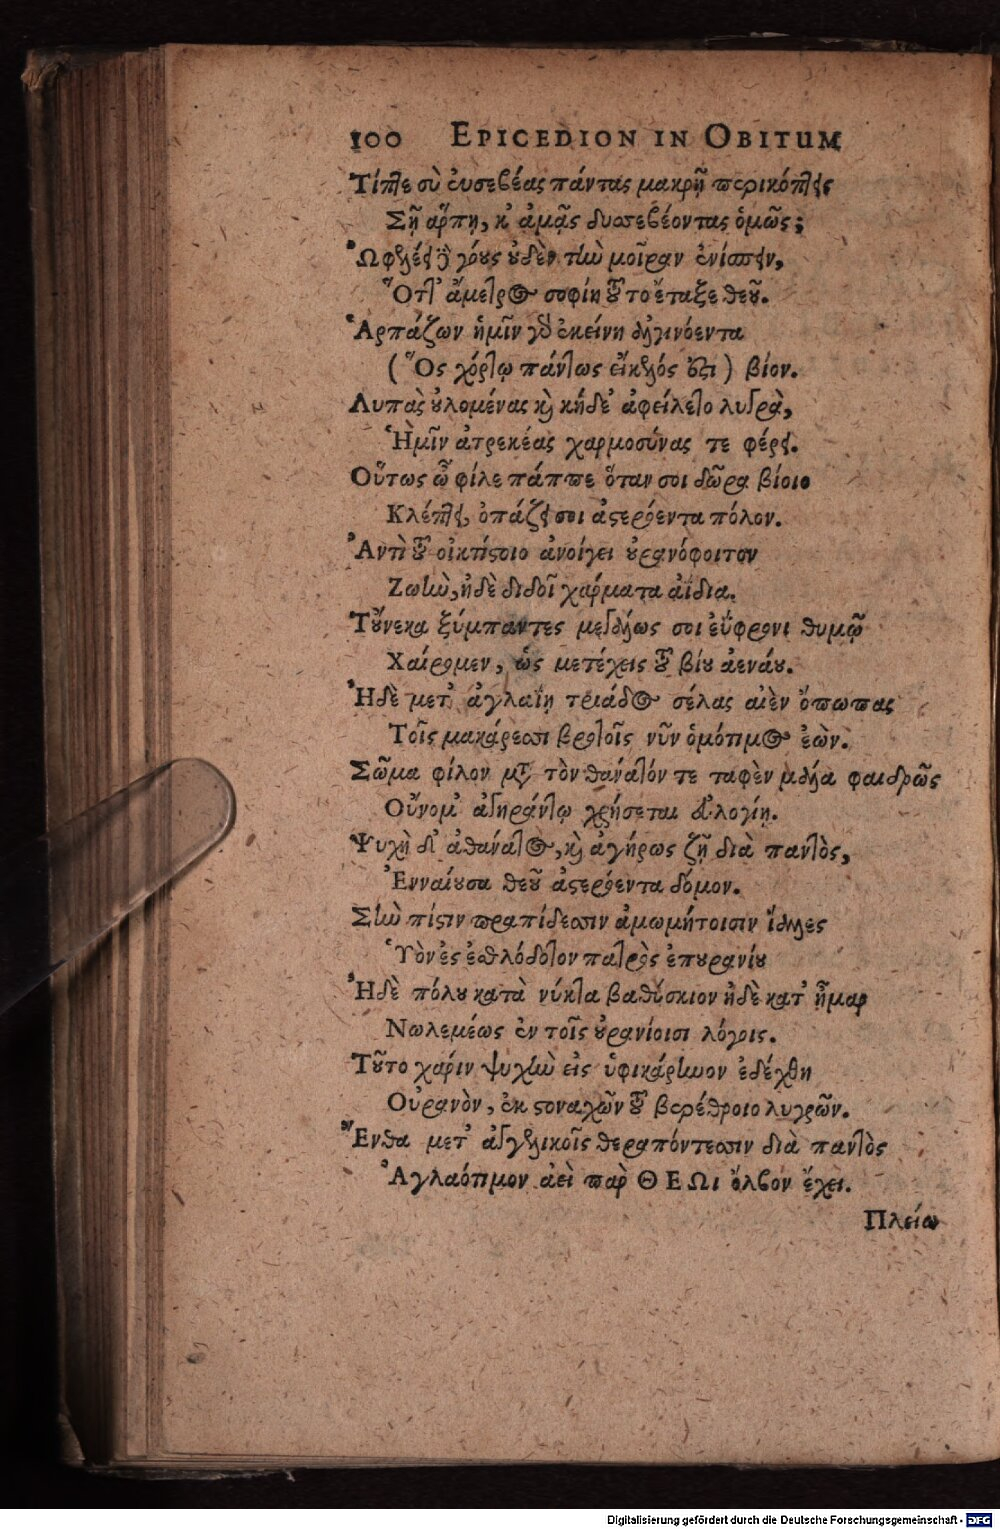 100 EPICEDION IN OBITUM
Τίπτε σὺ ἐυσεβέας πάντας μακρῇ περικόπτεις
Σῇ ἅρπῃ, κ' ἀμᾷς δυσσεβέοντας ὁμῶς;
Ὠφελέει γόους οὐδὲν τὴν μοῖραν ἐνίσπειν,
Ὅττ' ἄμετρος σοφίη τοῦτο ἔταξε θεοῦ.
Ἁρπάζων ἡμῖν γὸ ἐκείνη δηγινόεντα
(Ὃς χόρτῳ πάντως εἴκελός ἐστι) βίον.
Λυπὰς οὐλομένας καὶ κήδε' ἀφείλετο λυγρὰ,
Ἡμῖν ἀτρεκέας χαρμοσύνας τε φέρει.
Οὕτως ὦ φίλε πάππε ὅταν σοι δῶρα βίοιο
Κλέπτει, ὀπάζει σοι ἀστερόεντα πόλον.
Ἀντὶ τοῦ οἰκτίστοιο ἀνοίγει οὐρανόφοιτον
Ζωὴν, ἠδὲ διδοῖ χάρματα ἀίδια.
Τοὔνεκα ξύμπαντες μεγάλως σοι ἐΰφρονι θυμῷ
Χαίρομεν, ὡς μετέχεις τοῦ βίου ἀενάου.
Ἠδὲ μετ' ἀγλαΐῃ τριάδος σέλας αἰὲν ὄπωπας
Τοῖς μακάρεσσι βροτοῖς νῦν ὁμότιμος ἐὼν.
Σῶμα φίλον μετὰ τὸν θάνατόν τε ταφὲν μάλα φαιδρῶς
Οὔνομ' ἀγηράντῳ χρήσεται εὐλογίῃ.
Ψυχὴ δ' ἀθάνατος, καὶ ἀγήρως ζῇ διὰ παντὸς,
Ἐνναίουσα θεοῦ ἀστερόεντα δόμον.
Σὴν πίστιν πραπίδεσσιν ἀμωμήτοισιν ἵδρυες
Ὑὸν ἐς ἐσθλόδοτον πατρὸς ἐπουρανίου
Ἠδὲ πόλου κατὰ νύκτα βαθύσκιον ἠδὲ κατ' ἦμαρ
Νωλεμέως ἐν τοῖς οὐρανίοισι λόγοις.
Τοῦτο χάριν ψυχὴν εἰς ὑψικάρηνον ἐδέχθη
Οὐρανὸν, ἐκ στοναχῶν τοῦ βερέθροιο λυγρῶν.
Ἔνθα μετ' ἀγγελικοῖς θεραπόντεσσιν διὰ παντὸς
Ἀγλαότιμον ἀεὶ παρ ΘΕΩι ὄλβον ἔχει.
Πλείω
Digitalisierung gefördert durch die Deutsche Forschungsgemeinschaft - DFG